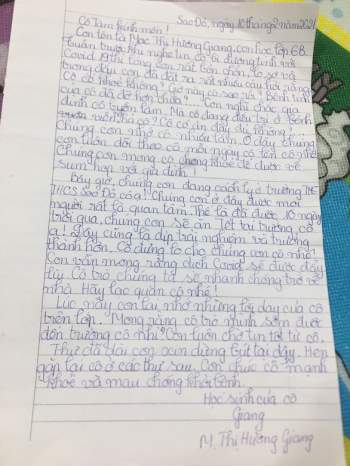 Sao Đỏ, ngày 10 tháng 2 năm 2021
Cô Tâm kính mến!
Con tên là Mạc Thị Hương Giang, con học lớp 6B.
tuần trước khi nghe tin cô bị dương tính với
Covid 19 thì lòng con rất bồn chồn, lo sợ và
trong đầu con đã đặt ra rất nhiều câu hỏi rằng
Cô có khoẻ không? Giờ này cô sao rồi? bệnh tình
của cô đã đỡ hơn chưa? Con nghĩ chắc gia
đình cô buồn lắm. Mà cô đang điều trị ở bệnh
viện nào cô? Cô có ăn đầy đủ không!
Chúng con nhớ cô nhiều lắm. Ở đây chúng
con luôn dõi theo cô mỗi ngày cô tên cô nhé
Chúng con mong cô chóng khoẻ để được về
sum họp với gia đình!
Bây giờ, chúng con đang cách ly ở trường
THCS Sao Đỏ cô ạ! Chúng con ở đây được mọi
người rất là quan tâm. Thế là đã được 10 ngày
trôi qua, chúng con sẽ ăn Tết tại trường, cô
ạ! Đây cũng là dịp trải nghiệm và trưởng
thành hơn. Cô đừng lo cho chúng con cô nhé!
Con vẫn mong rằng dịch Covid sẽ được đẩy
lùi. Cô trò chúng ta sẽ nhanh chóng trở về
nhà. Hãy lạc quan cô nhé!
Lúc này con lại nhớ những lời dạy của cô
trên lớp. Mong rằng cô trò mình sớm được
đến trường cô nhỉ! Con luôn chờ tin tốt từ cô.
Thư đã dài con xin dừng bút tại đây. Hẹn
gặp lại cô ở các thư sau. Con chúc cô mạnh
khoẻ và mau chóng khỏi bệnh.
Học sinh của cô
Giang
M. Thị Hương Giang